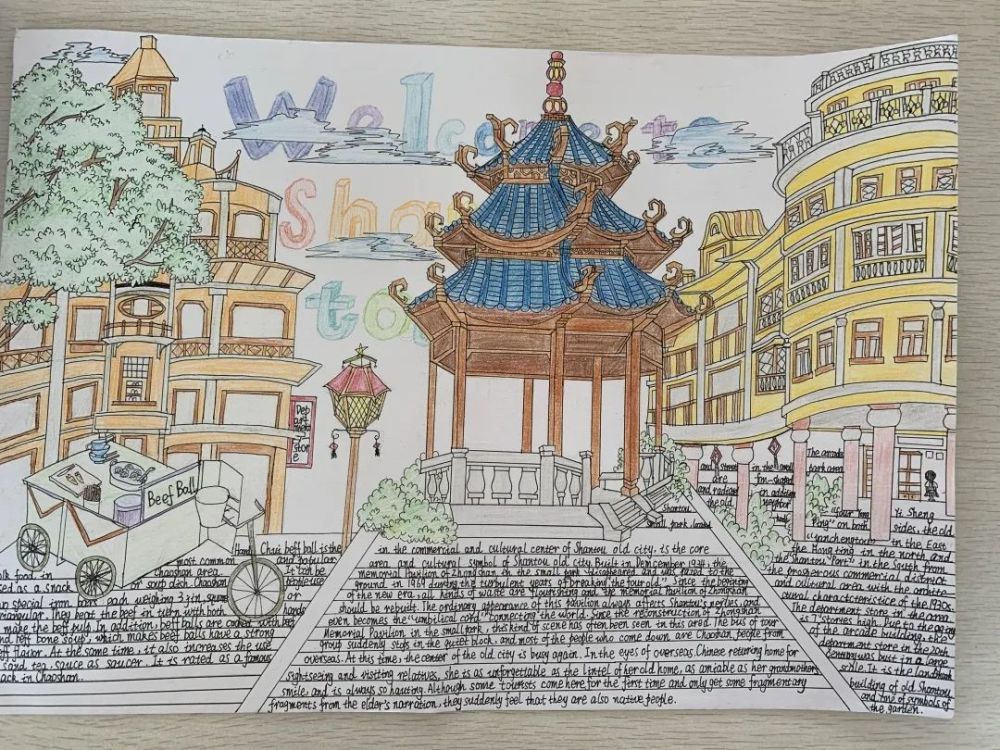 Welcome to
Sha
to
Dep
art
ment
store
Beef Ball
Chaoshan beef ball is the
most common and popular
folk food in Chaoshan area. It can be
used as a snack or soup dish. Chaoshan
special iron bars, each weighing 3 jin, square
triangular. They beat the beef in turn with both hands
make the beef pulp. In addition, beef balls are cooked with beef
beef bone soup, which makes beef balls have a strong
beef flavor. At the same time, it also increases the use
sand tea sauce as saucer. It is rated as a famous
snack in Chaoshan.
Shantou
small park, located
in the commercial and cultural center of Shantou old city, is the core
area and cultural symbol of Shantou old city. Built in December 1934, the
memorial pavilion of Zhongshan in the small park
ground in 1969 during the turbulent years of breaking the four old". Since the beginning
of the new era, all kinds of waste are flourishing and the memorial Pavilion of Zhongshan
should be rebuilt. The ordinary appearance of this pavilion always affects Shantou's nerves, and
even becomes the "umbilical cord" connecting the world. Since the restruction of Zhongshan
Memorial Pavilion in the small park, this kind of scene has often been seen in this area. The bus of tour
group suddenly stops in the outer block, and most of the people who come down are Chaoshan people from
overseas. At this time, the center of the old city is busy again. In the eyes of overseas Chinese returing home for
sightseeing and visiting relatives, she is as unforgettable as the lintel of her old home, as amiable as her grandmother's
smile, and is always so hauting. Although some tourists come here for the first time and only get some fragmentary
fragments from the elder's narration, they suddenly feel that they are also native people.
The arcade
park area
in the small
fan-shaped
and Street
are
and radiate
the old
in addition
neighbor
"Four Yong
Yi Sheng
Ping" on both sides, the old
in the East,
the Hongting in the north and
the Shantou "Port" in the South from
the prosperous commercial district
and cultural area with the archite
ctural characteristics of the 1930s.
The department store in the area
is 7 stories high. Due to the
of the arcade building, the
department store in the 20th
century was bust in a large
scale. It is the landmark
building of old Shantou
and one of symbols of
the garden.